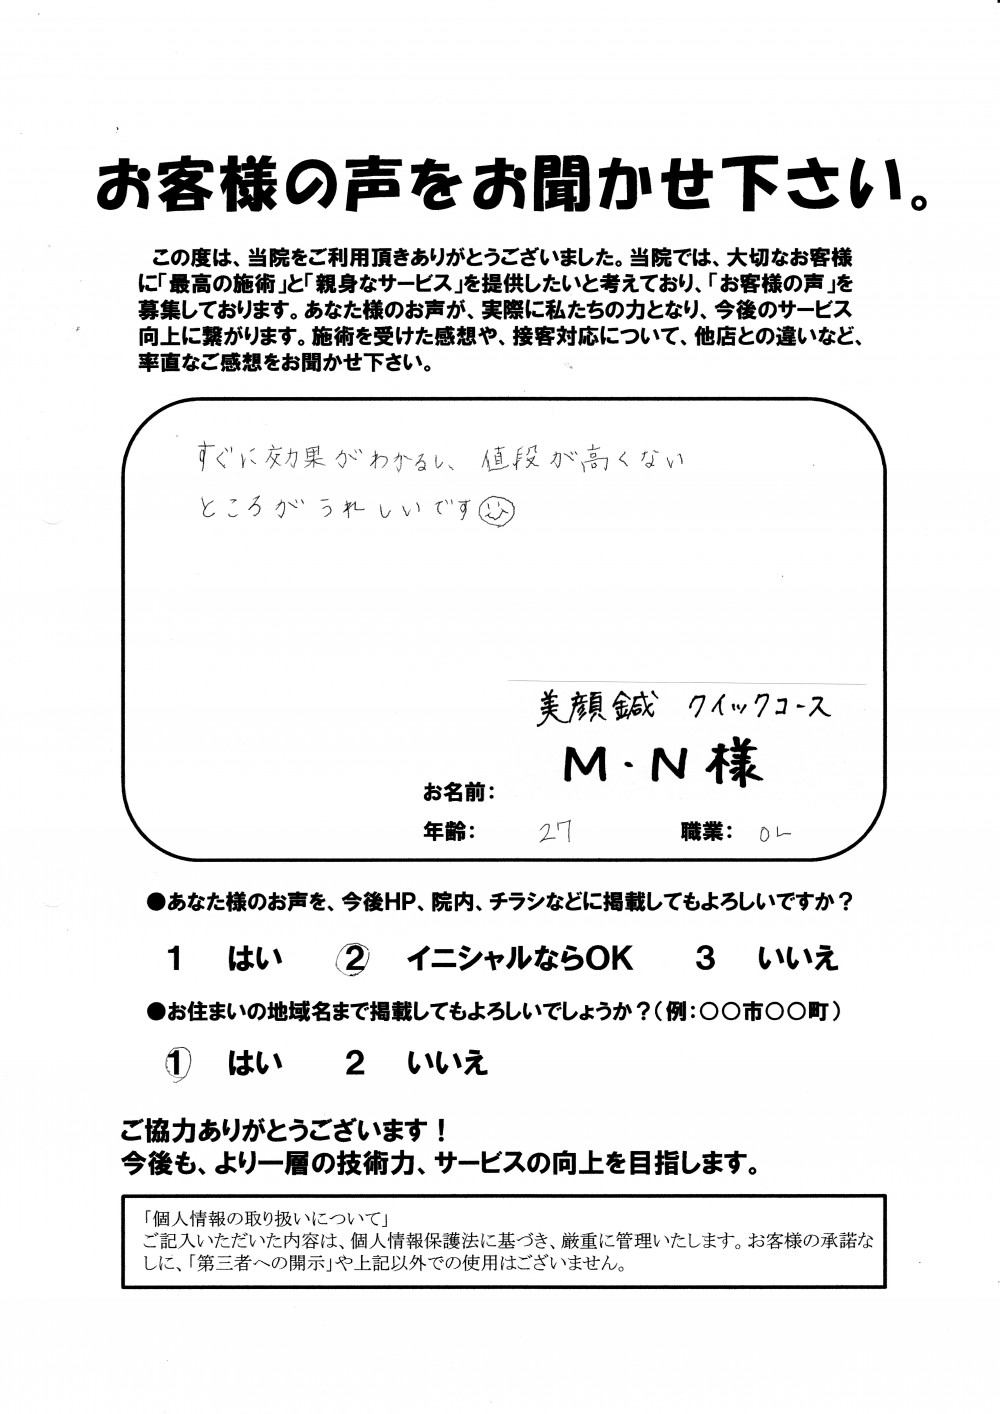 お客様の声をお聞かせ下さい。
この度は、当院をご利用頂きありがとうございました。当院では、大切なお客様
に「最高の施術」と「親身なサービス」を提供したいと考えており、「お客様の声」を
募集しております。あなた様のお声が、実際に私たちの力となり、今後のサービス
向上に繋がります。施術を受けた感想や、接客対応について、他店との違いなど、
率直なご感想をお聞かせ下さい。
すぐに効果がわかるし、値段が高くない
ところがうれしいです
美顔鍼 クイックコース
M・N様
お名前：
年齢： 27 職業： OL
●あなた様のお声を、今後HP、院内、チラシなどに掲載してもよろしいですか？
1 はい 2 イニシャルならOK 3 いいえ
●お住まいの地域名まで掲載してもよろしいでしょうか？（例：〇〇市〇〇町）
1 はい 2 いいえ
ご協力ありがとうございます！
今後も、より一層の技術力、サービスの向上を目指します。
「個人情報の取り扱いについて」
ご記入いただいた内容は、個人情報保護法に基づき、厳重に管理いたします。お客様の承諾な
しに、「第三者への開示」や上記以外での使用はございません。